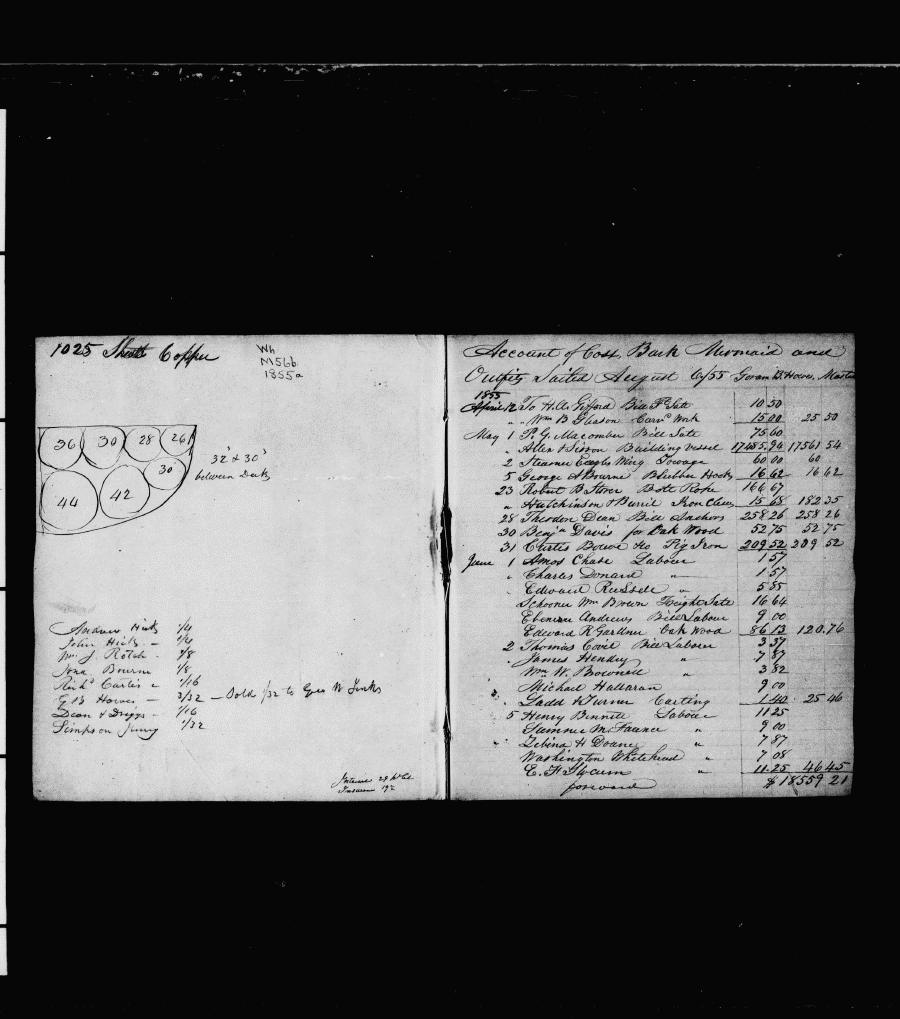 1025 Sheets Copper
Wh
M566
1855a
36 30 28 26
30
44 42
32" & 30"
between Decks
Andrew Hicks 1/4
John Hicks – 1/4
Wm J. Rotch – 1/8
Jona Bourne 1/8
Richd Curtis – 1/16
G B Howes – 3/32 – Sold /32 to Geo W Jenks
Dean & Driggs – 1/16
Simpson 1/32
29
Insurance
Account of Cost Bark Mermaid and
Outfits Sailed August 6/55 Goram B. Howes, Master
1855
April 12 To H. A. Gifford Bill 10 50
" " Wm B Gleason Carvg Work 15 00 25 50
May 1 P. G. Macomber Bill 75 60
" Alex H Sisson Building vessel 17485.94 17561 54
2 Steamer Eagles Wing Towage 60 00 60
5 George A Bourne Blubber Hooks 16 62 16 62
23 Robert B. Bolt Rope 166 67
" Hutchinson & Burril Iron 15 68 182 35
28 Theodore Dean Bill Anchors 258 26 258 26
30 Benjn Davis for Oak Wood 52 75 52 75
31 Curtis &Co Pig Iron 209 52 209 52
June 1 Amos Chase Labour 1 57
" Charles Donard " 1 57
Edward Russell " 5 85
Schooner Wm Brown 16 64
Ebenezer Andrews Bill Labour 9 00
Edward R Gardner Oak Wood 86 13 120.76
2 Thomas Covil Bill Labour 3 37
" James Hendry " 7 87
Wm W. Brownell " 3 82
Michael Hallaran 9 00
" Ladd & Turner Carting 1 40 25 46
5 Henry Bennett Labour 11 25
" 9 00
" Zebina H Doane " 7 87
Washington Whitehead " 7 08
E. F. " 11.25 46 45
forward $18559 21